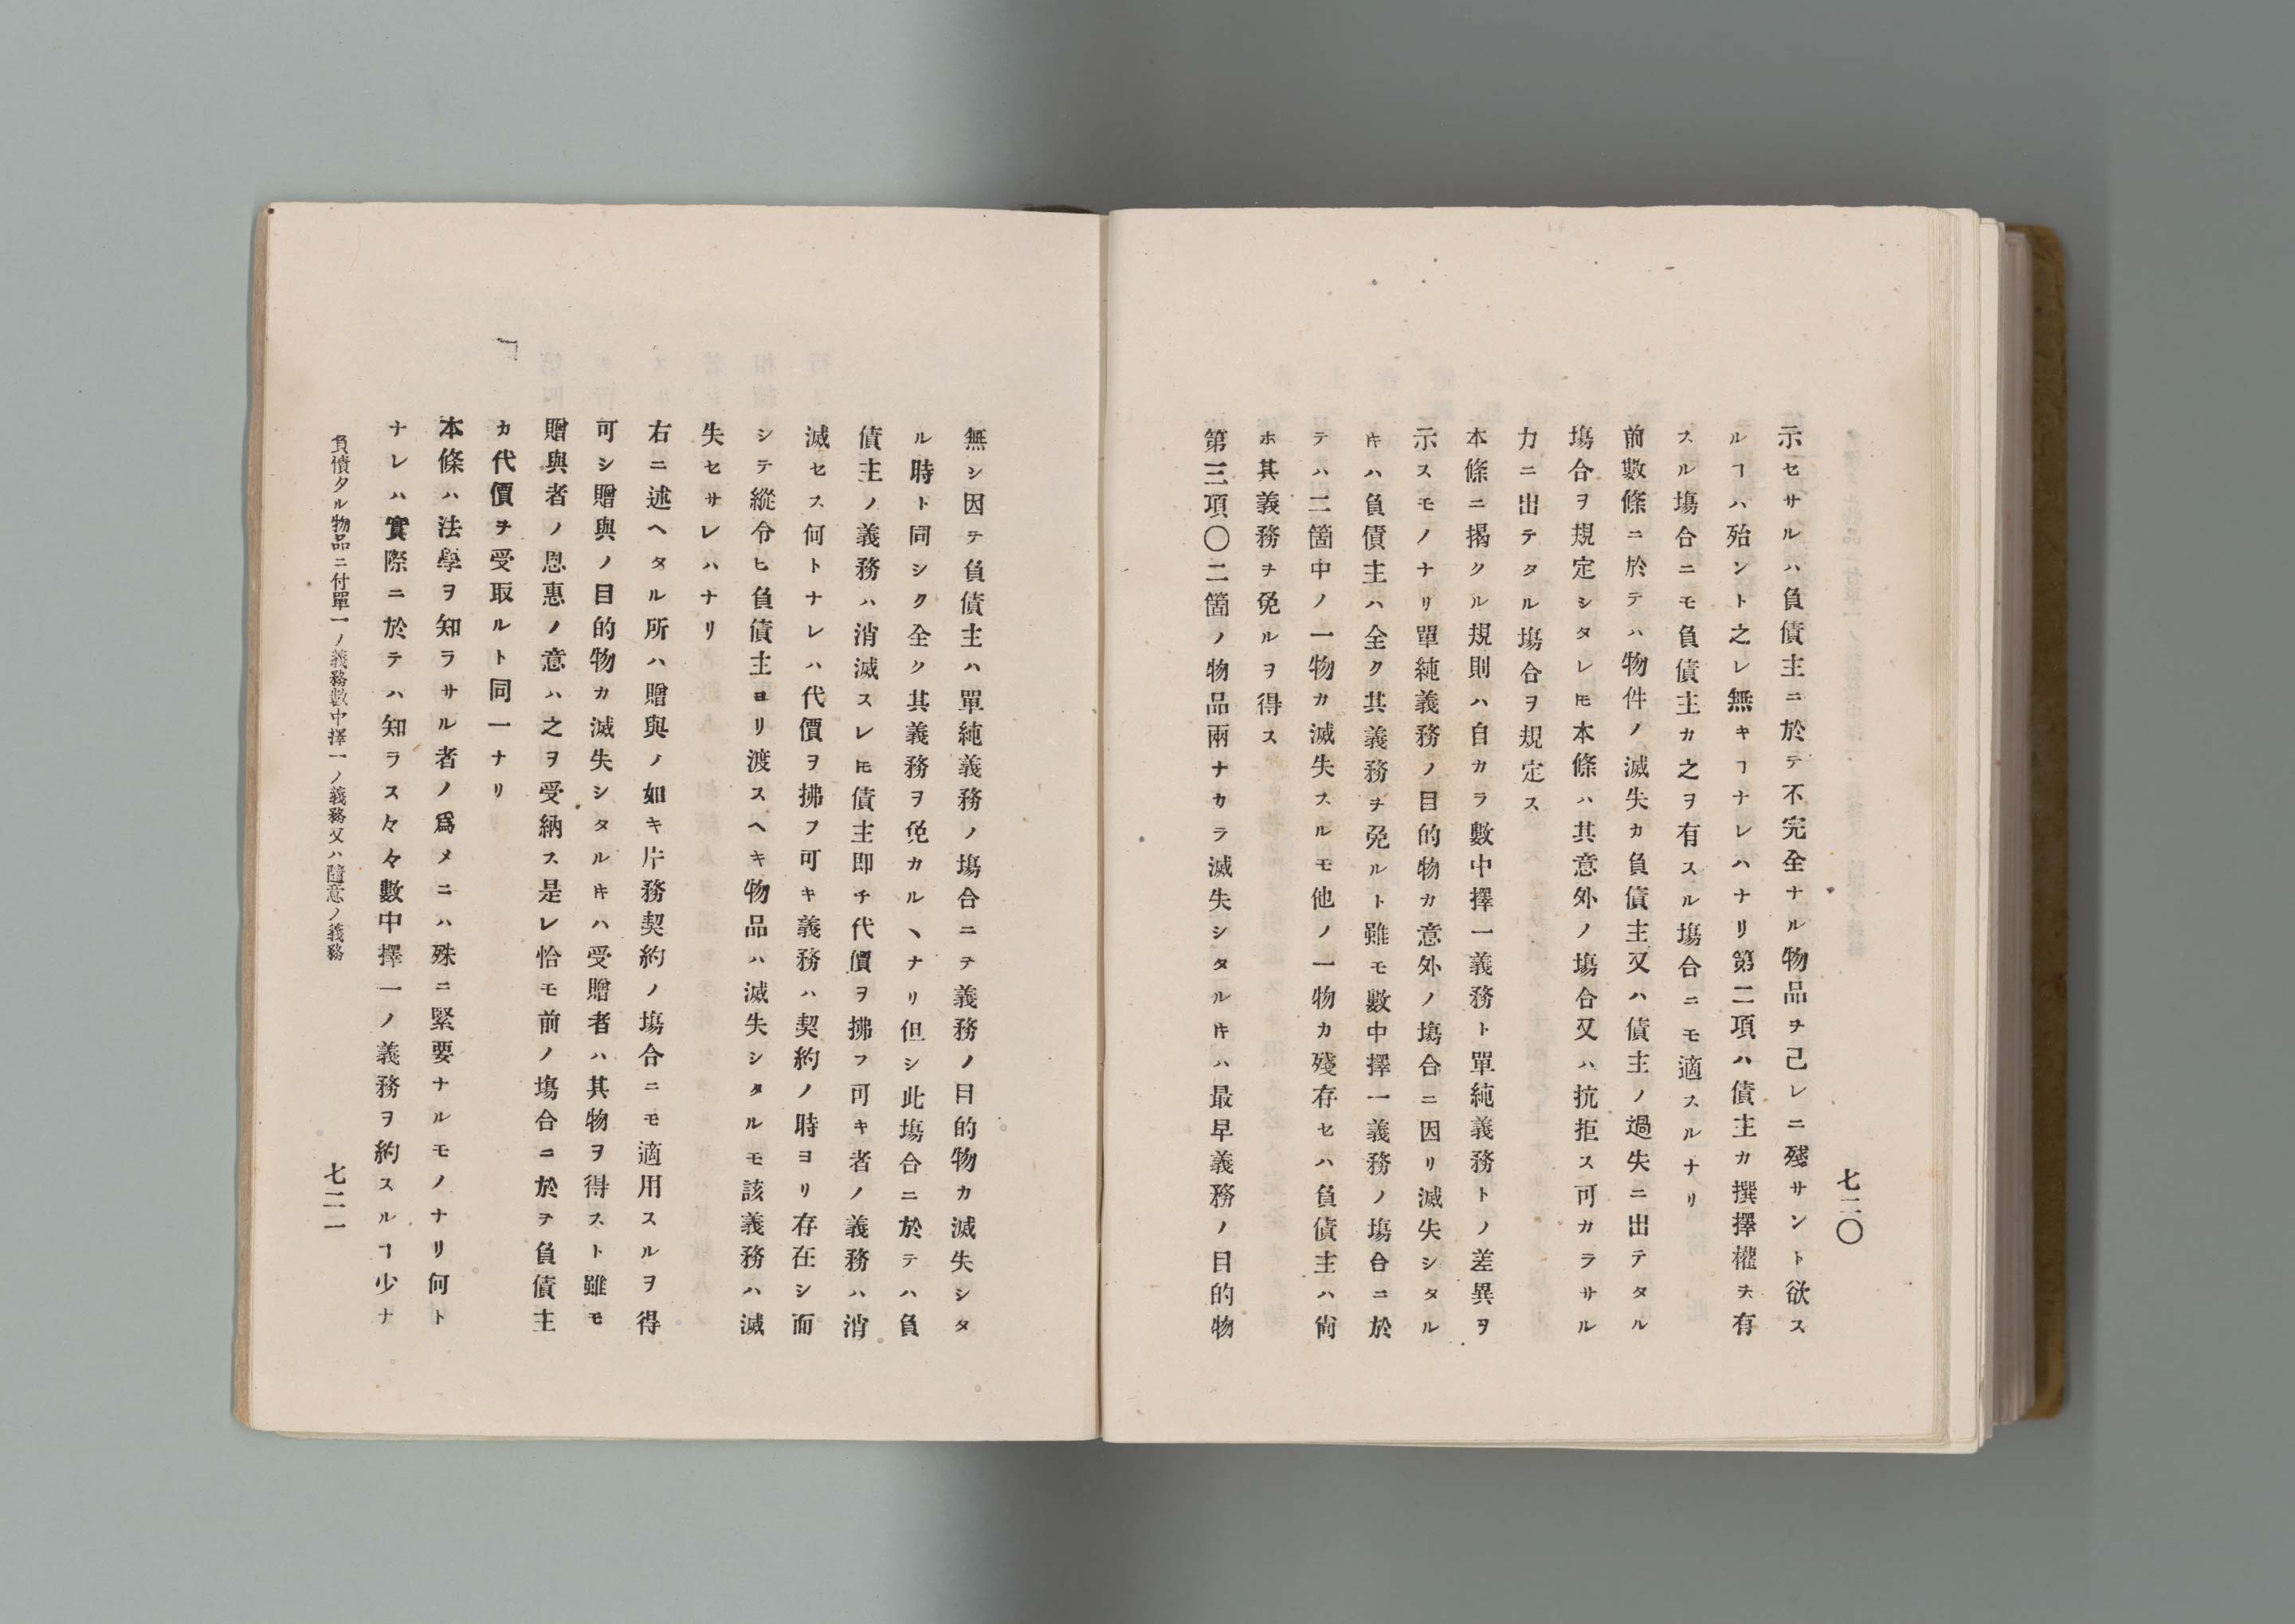 七二〇
示セサルハ負債主ニ於テ不完全ナル物品ヲ己レニ殘サント欲ス
ルヿハ殆ント之レ無キヿナレハナリ第二項ハ債主カ撰擇權ヲ有
スル塲合ニモ負債主カ之ヲ有スル塲合ニモ適スルナリ
前數條ニ於テハ物件ノ滅失カ負債主又ハ債主ノ過失ニ出テタル
塲合ヲ規定シタレ𪜈本條ハ其意外ノ塲合又ハ抗拒ス可カラサル
力ニ出テタル塲合ヲ規定ス
本條ニ揭クル規則ハ自カラ數中擇一義務ト單純義務トノ差異ヲ
示スモノナリ單純義務ノ目的物カ意外ノ塲合ニ因リ滅失シタル
𪜈ハ負債主ハ全ク其義務ヲ免ルト雖モ數中擇一義務ノ塲合ニ於
テハ二箇中ノ一物カ滅失スルモ他ノ一物カ殘存セハ負債主ハ尙
ホ其義務ヲ免ルヲ得ス
第三項〇二箇ノ物品兩ナカラ滅失シタル𪜈ハ最早義務ノ目的物
無シ因テ負債主ハ單純義務ノ塲合ニテ義務ノ目的物カ滅失シタ
ル時ト同シク全ク其義務ヲ免カルヽナリ但シ此塲合ニ於テハ負
債主ノ義務ハ消滅スレ𪜈債主即チ代價ヲ拂フ可キ者ノ義務ハ消
滅セス何トナレハ代價ヲ拂フ可キ義務ハ契約ノ時ヨリ存在シ而
シテ縱令ヒ負債主ヨリ渡スヘキ物品ハ滅失シタルモ該義務ハ滅
失セサレハナリ
右ニ述ヘタル所ハ贈與ノ如キ片務契約ノ塲合ニモ適用スルヲ得
可シ贈與ノ目的物カ滅失シタル𪜈ハ受贈者ハ其物ヲ得スト雖モ
贈與者ノ恩惠ノ意ハ之ヲ受納ス是レ恰モ前ノ塲合ニ於テ負債主
カ代價ヲ受取ルト同一ナリ
本條ハ法學ヲ知ラサル者ノ爲メニハ殊ニ緊要ナルモノナリ何ト
ナレハ實際ニ於テハ知ラス々々數中擇一ノ義務ヲ約スルヿ少ナ
負債タル物品ニ付單一ノ義務數中擇一ノ義務又ハ隨意ノ義務
七二一